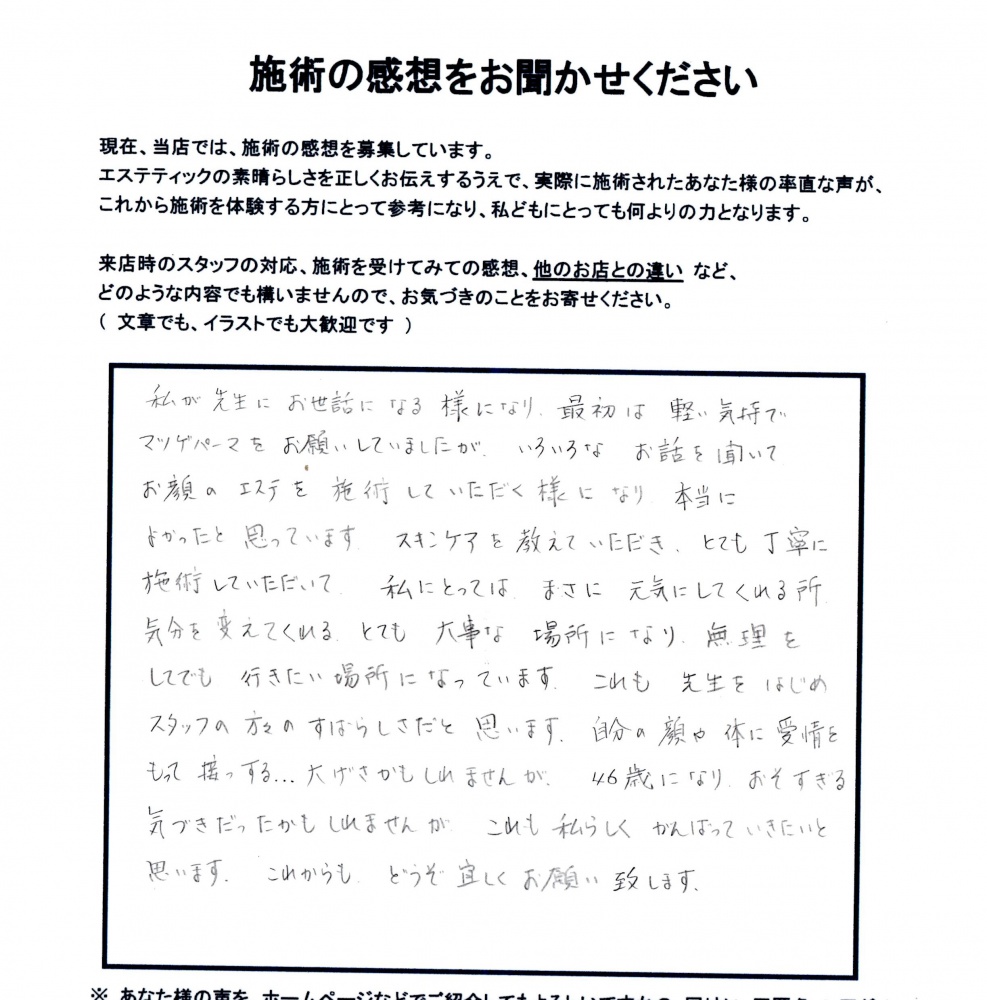 施術の感想をお聞かせください
現在、当店では、施術の感想を募集しています。
エステティックの素晴らしさを正しくお伝えするうえで、実際に施術されたあなた様の率直な声が、
これから施術を体験する方にとって参考になり、私どもにとっても何よりの力となります。
来店時のスタッフの対応、施術を受けてみての感想、他のお店との違い など、
どのような内容でも構いませんので、お気づきのことをお寄せください。
( 文章でも、イラストでも大歓迎です )
私が 先生に お世話に なる 様になり、最初は 軽い気持で
マツゲパーマを お願いしていましたが、いろいろな お話を聞いて
お顔の エステを 施術していただく様になり 本当に
よかったと 思っています。 スキンケアを教えていただき、とても丁寧に
施術していただいて、 私にとっては、まさに 元気にしてくれる所、
気分を変えてくれる、とても 大事な 場所になり、無理を
してでも 行きたい場所になっています。 これも 先生をはじめ
スタッフの 方々のすばらしさだと 思います。自分の顔や体に愛情を
もって 接っする…大げさかもしれませんが、 46歳になり、おそすぎる
気づきだったかもしれませんが、 これも 私らしく がんばっていきたいと
思います。 これからも、どうぞ 宜しく お願い 致します。
※ あなた様の声を、ホームページなどでご紹介してもよろしいですか？